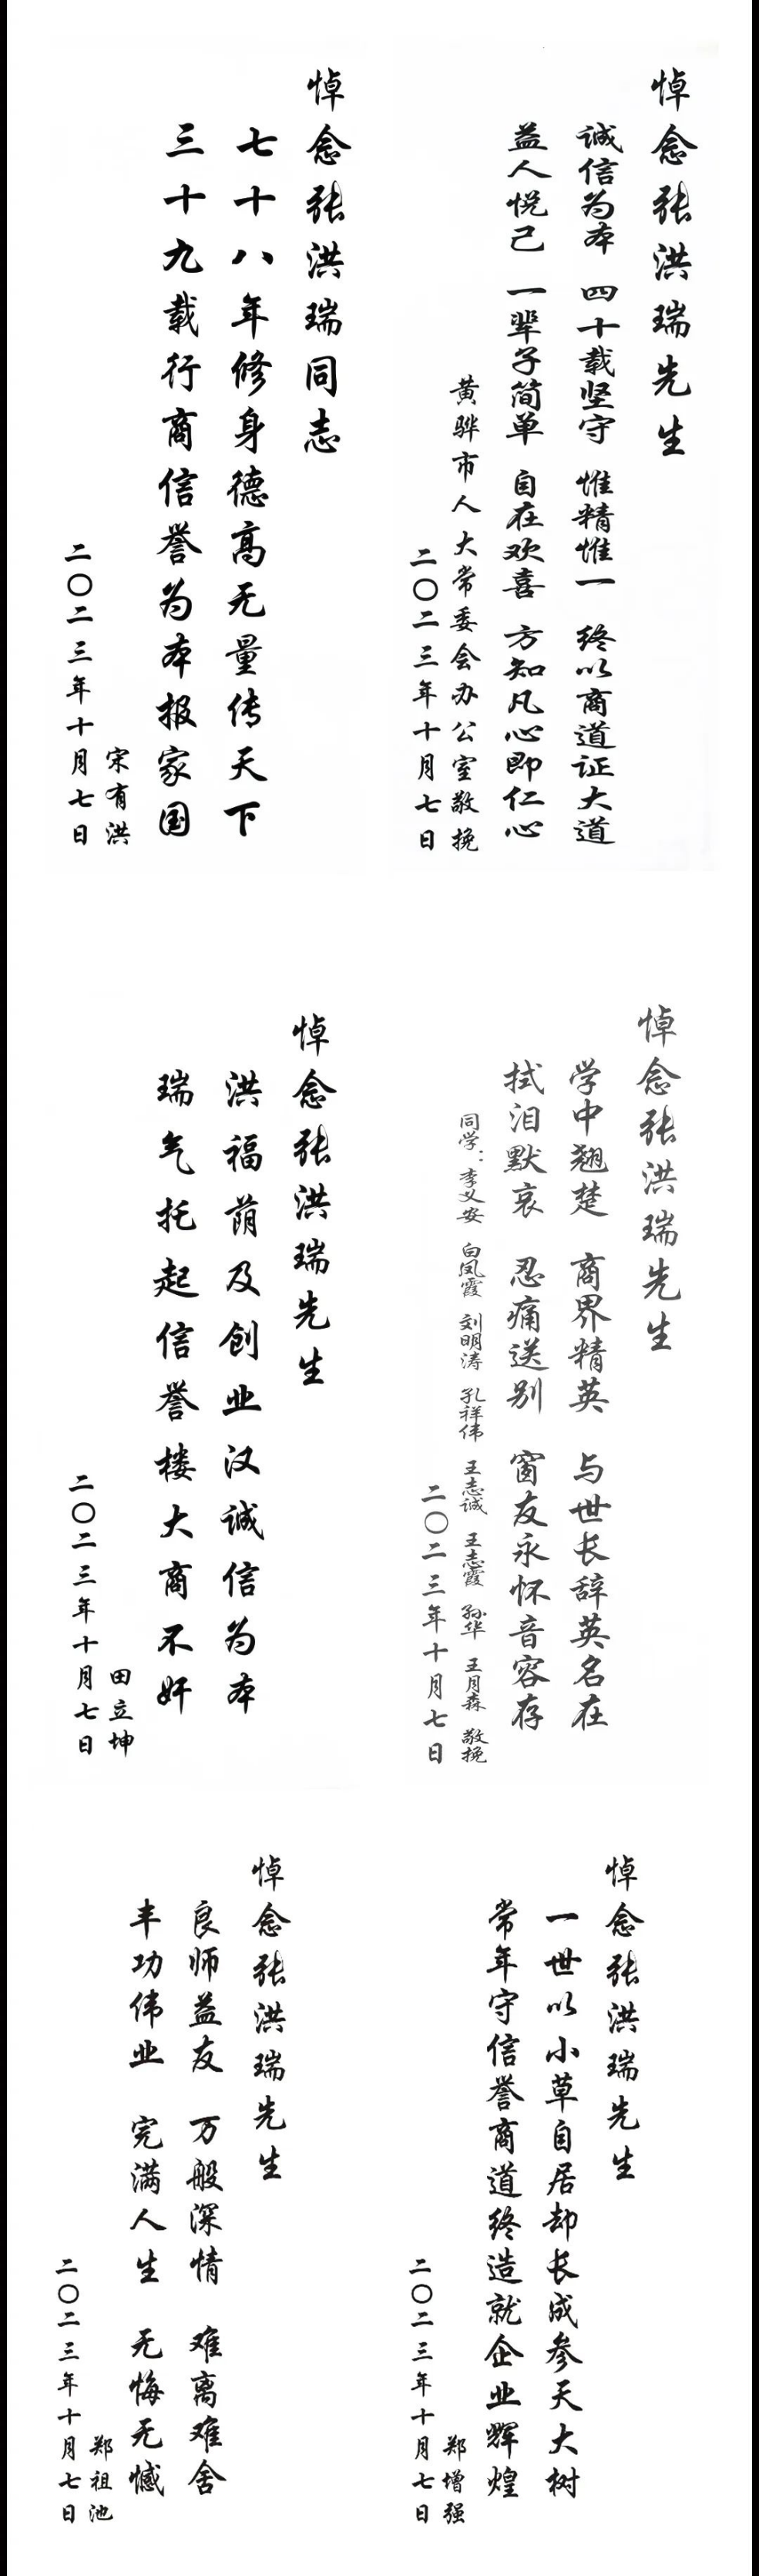 悼念张洪瑞先生
诚信为本 四十载坚守 惟精惟一 终以商道证大道
益人悦己 一辈子简单 自在欢喜 方知凡心即仁心
黄骅市人大常委会办公室敬挽
二〇二三年十月七日
悼念张洪瑞同志
七十八年修身德高无量传天下
三十九载行商信誉为本报家国
宋有洪
二〇二三年十月七日
悼念张洪瑞先生
学中翘楚 商界精英 与世长辞英名在
拭泪默哀 忍痛送别 窗友永怀音容存
同学：李义安 白凤霞 刘明涛 孔祥伟 王志诚 王志霞 孙华 王月森 敬挽
二〇二三年十月七日
悼念张洪瑞先生
洪福荫及创业汉诚信为本
瑞气托起信誉楼大商不奸
田立坤
二〇二三年十月七日
悼念张洪瑞先生
一世以小草自居却长成参天大树
常年守信誉商道终造就企业辉煌
郑增强
二〇二三年十月七日
悼念张洪瑞先生
良师益友 万般深情 难离难舍
丰功伟业 完满人生 无悔无憾
郑祖池
二〇二三年十月七日